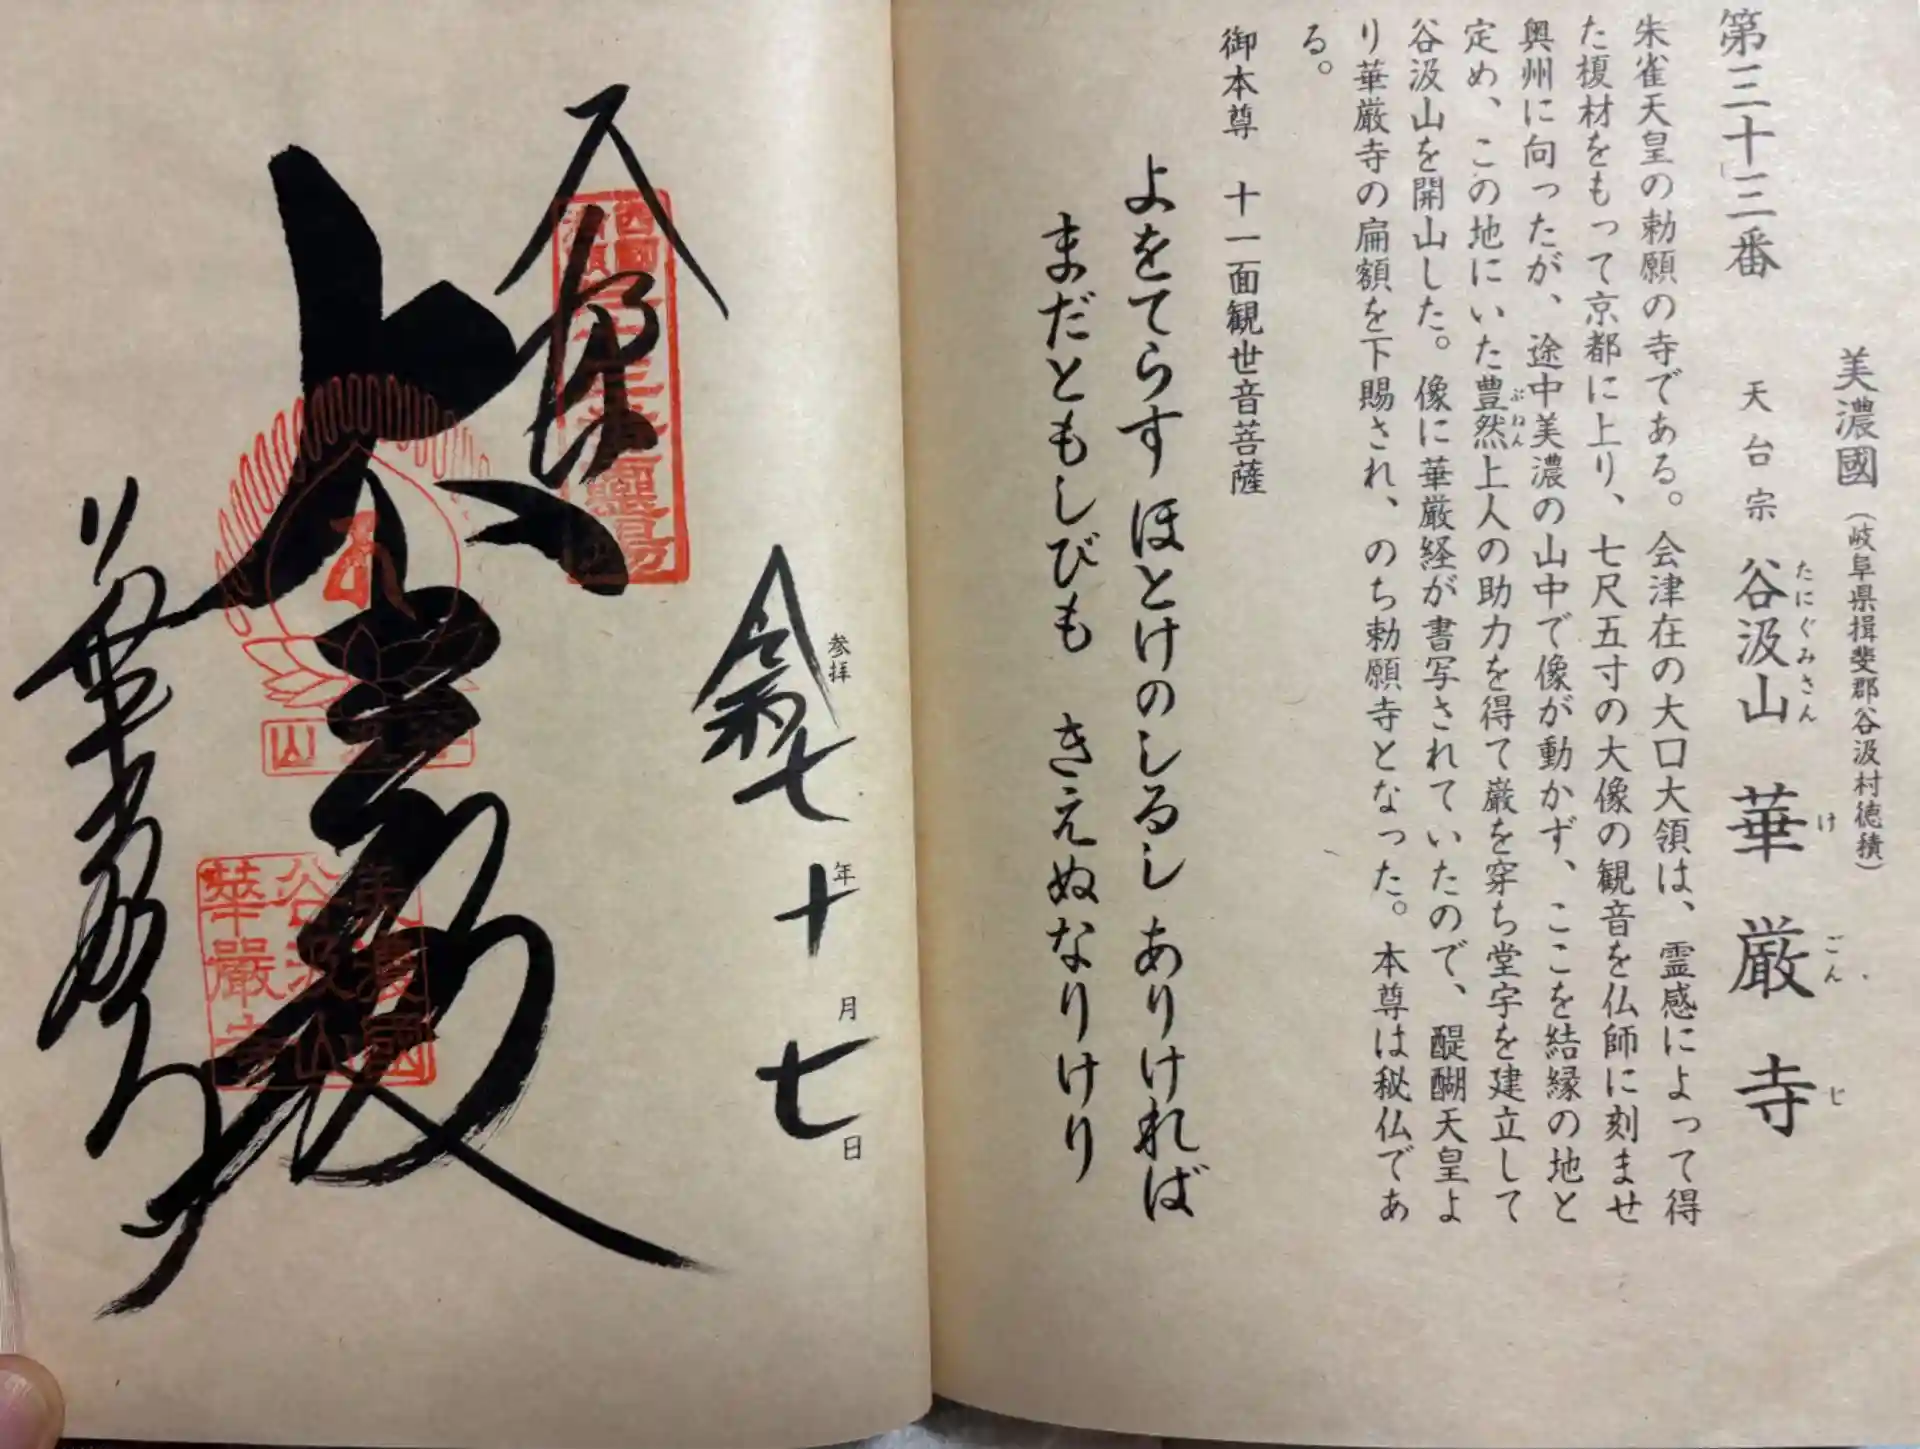 第三十三番
美濃國(岐阜県揖斐郡谷汲村徳積)
天台宗 谷汲山 華厳寺
たにぐみさん けごんじ
朱雀天皇の勅願の寺である。会津在の大口大領は、霊感によって得
た榎材をもって京都に上り、七尺五寸の大像の観音を仏師に刻ませ
奥州に向ったが、途中美濃の山中で像が動かず、ここを結縁の地と
定め、この地にいた豊然上人の助力を得て巌を穿ち堂宇を建立して
ぶねん
谷汲山を開山した。像に華厳経が書写されていたので、醍醐天皇よ
り華厳寺の扁額を下賜され、のち勅願寺となった。本尊は秘仏であ
る。
御本尊 十一面観世音菩薩
よをてらす ほとけのしるし ありければ
まだともしびも きえぬなりけり
参拝
令和七年十月七日
奉拝
大悲殿
谷汲山
華厳寺
美濃國
谷汲山
華嚴寺